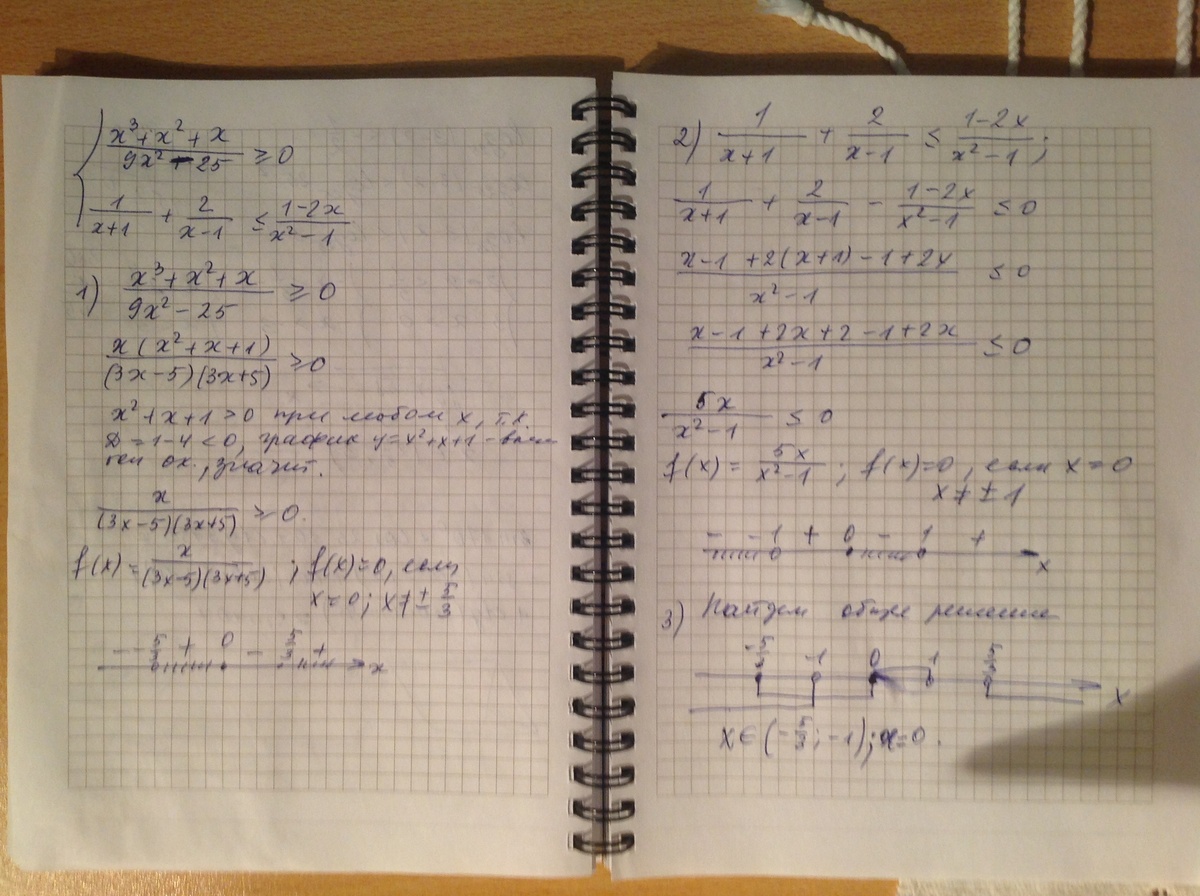 { (x³+x²+x)/(9x²-25) ≥ 0
1/(x+1) + 2/(x-1) ≤ (1-2x)/(x²-1)
1) (x³+x²+x)/(9x²-25) ≥ 0
x(x²+x+1)/((3x-5)(3x+5)) ≥ 0
x²+x+1>0 при любом x, т.к.
D=1-4<0, график y=x²+x+1 -
ox, значит.
x/((3x-5)(3x+5)) ≥ 0.
f(x)= x/((3x-5)(3x+5)) ; f(x)=0, если
x=0; x≠±5/3
- -5/3 + 0 - 5/3 + x
2) 1/(x+1) + 2/(x-1) ≤ (1-2x)/(x²-1);
1/(x+1) + 2/(x-1) - (1-2x)/(x²-1) ≤ 0
(x-1+2(x+1)-1+2x)/(x²-1) ≤ 0
(x-1+2x+2-1+2x)/(x²-1) ≤ 0
5x/(x²-1) ≤ 0
f(x)= 5x/(x²-1) ; f(x)=0, если x=0
x≠±1
- -1 + 0 - 1 + x
3) Найдем общее решение
-5/3 -1 0 1 5/3 x
x∈(-5/3;-1);x=0.